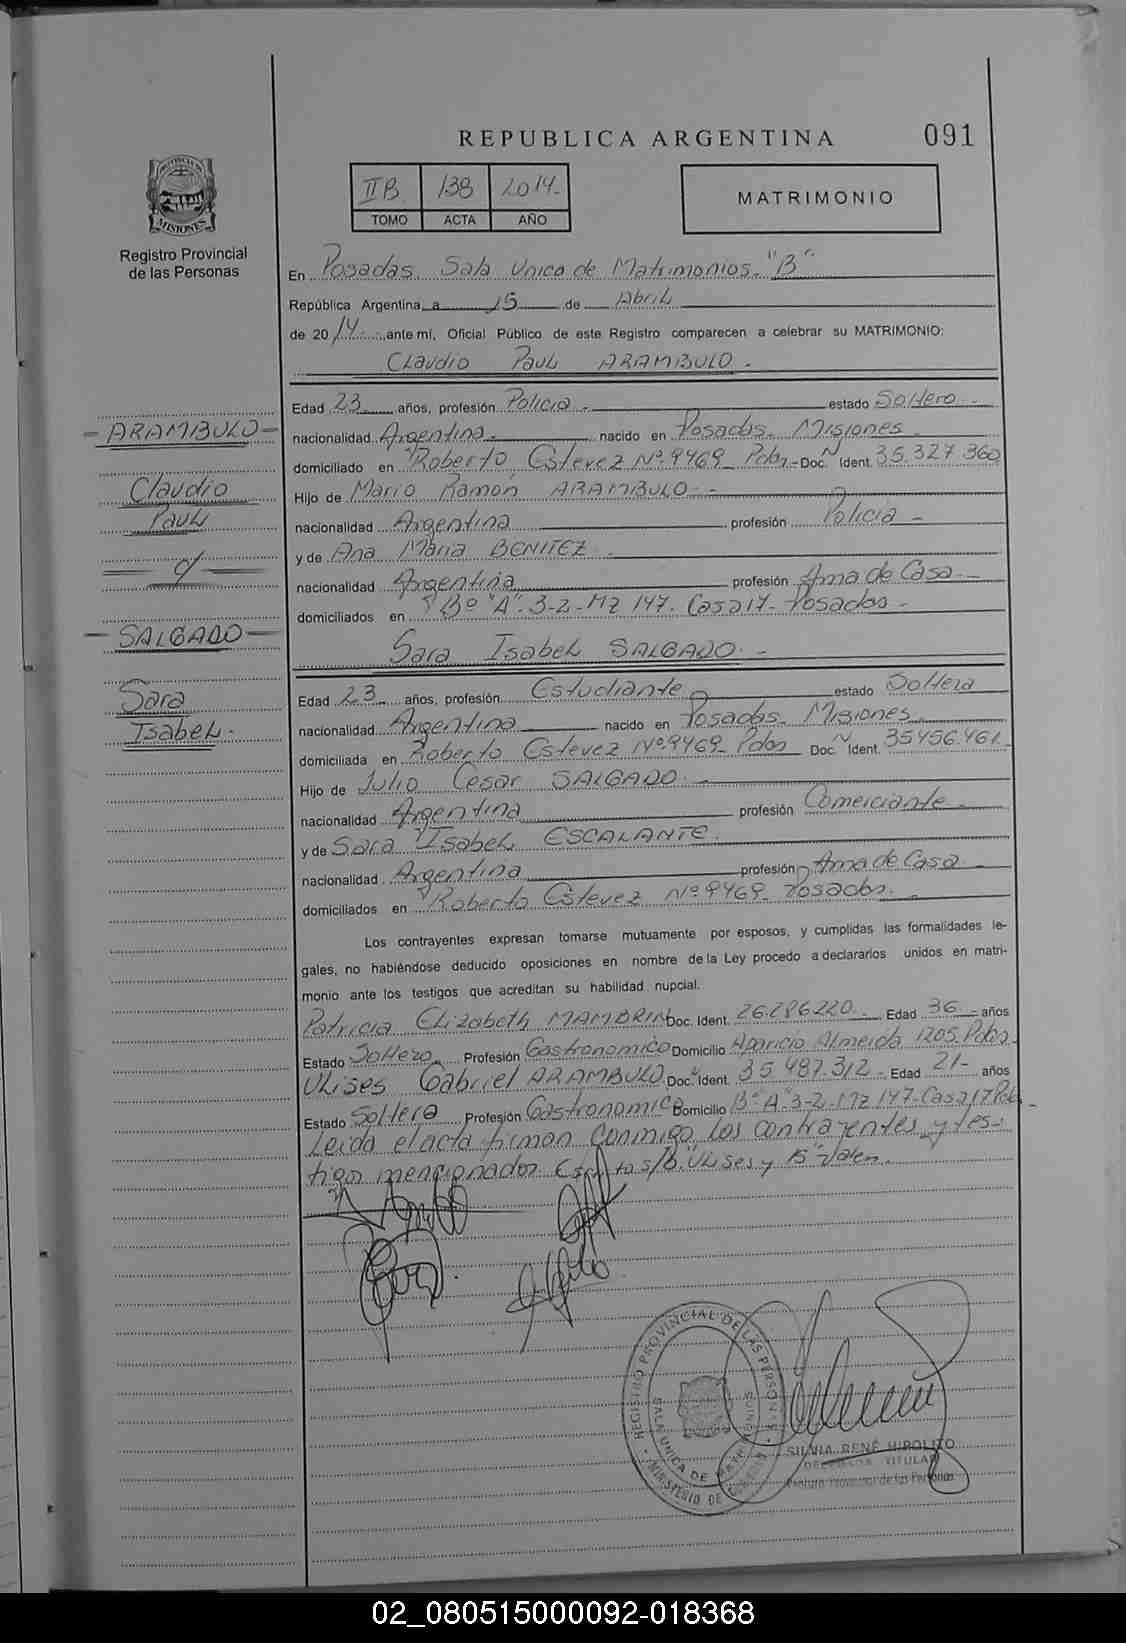 REPUBLICA ARGENTINA
091
IIB 138 2014
TOMO ACTA AÑO
MATRIMONIO
PROVINCIA DE MISIONES
Registro Provincial
de las Personas
En Posadas. Sala Unica de Matrimonios. "B"
República Argentina, a 15 de Abril
de 2014 ante mí, Oficial Público de este Registro comparecen a celebrar su MATRIMONIO:
Claudio Paul ARAMBULO.
Edad 23 años, profesión Policia. estado Soltero
nacionalidad Argentina. nacido en Posadas. Misiones
domiciliado en Roberto Estevez Nº 9469 Pdas - Doc. N Ident. 35.327.360
Hijo de Mario Ramón ARAMBULO.-
nacionalidad Argentina profesión Policia -
y de Ana Maria BENITEZ
nacionalidad Argentina profesión Ama de Casa.-
domiciliados en Bº "A".3-2-Mz 147. Casa 17- Posadas -
Sara Isabel SALGADO.-
Edad 23 años, profesión Estudiante estado Soltera
nacionalidad Argentina nacido en Posadas. Misiones
domiciliada en Roberto Estevez Nº 9469 Pdas Doc. N Ident. 35456.461
Hijo de Julio Cesar SALGADO.-
nacionalidad Argentina profesión Comerciante
y de Sara Isabel ESCALANTE
nacionalidad Argentina profesión Ama de Casa
domiciliados en Roberto Estevez Nº 9469 Posadas.
Los contrayentes expresan tomarse mutuamente por esposos, y cumplidas las formalidades le-
gales, no habiéndose deducido oposiciones en nombre de la Ley procedo a declararlos unidos en matri-
monio ante los testigos que acreditan su habilidad nupcial.
Patricia Elizabeth MAMBRIN Doc. Ident. 26.286220 Edad 36 - años
Estado Soltero Profesión Gastronomico Domicilio Aparicio Almeida 1205. Pdas
Ulises Gabriel ARAMBULO Doc. Ident. 35.487.312 - Edad 21- años
Estado Soltera Profesión Gastronomica Domicilio Bº "A" 3-2-Mz 147-Casa 17 Pdas
Leida el acta firman conmigo los contrayentes y tes-
tigos mencionados. Escrito s/b. "Ulises y B" Valen.
- ARAMBULO -
Claudio
Paul
c/
- SALGADO -
Sara
Isabel.
REGISTRO PROVINCIAL DE LAS PERSONAS
MINISTERIO DE GOBIERNO
SALA UNICA DE
SILVIA RENÉ HIPOLITO
DELEGADA TITULAR
Registro Provincial de las Personas
02_080515000092-018368